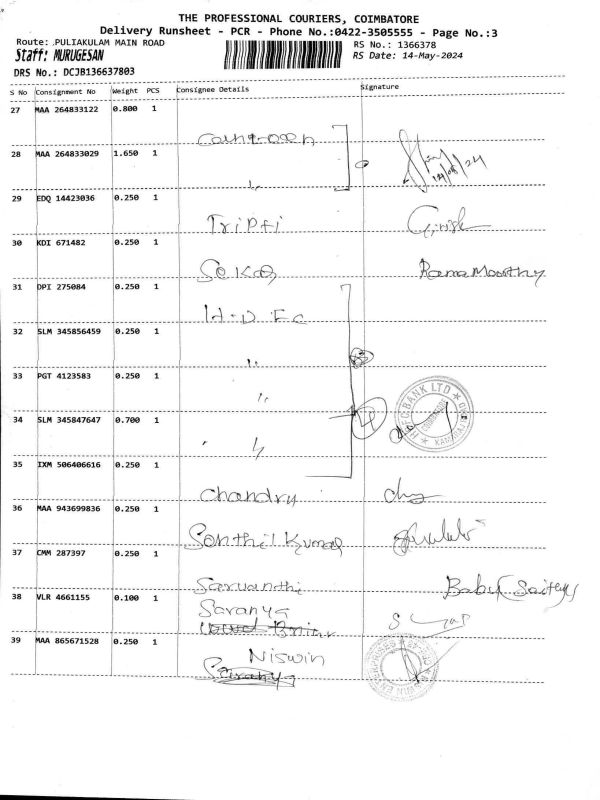 THE PROFESSIONAL COURIERS, COIMBATORE
Delivery Runsheet - PCR - Phone No.:0422-3505555 - Page No.:3
Route: PULIAKULAM MAIN ROAD
RS No.: 1366378
Staff: MURUGESAN
RS Date: 14-May-2024
DRS No.: DCJB136637803
S No Consignment No Weight PCS Consignee Details Signature
27 MAA 264833122 0.800 1
28 MAA 264833029 1.650 1
14/05/24
"
29 EDQ 14423036 0.250 1
Tripti Girish
30 KDI 671482 0.250 1
Sekar Rama Moorthy
31 DPI 275084 0.250 1
H-D Fc
32 SLM 345856459 0.250 1
"
33 PGT 4123583 0.250 1
"
34 SLM 345847647 0.700 1
HDFC BANK LTD
"
35 IXM 506406616 0.250 1
Chandru
36 MAA 943699836 0.250 1
Senthil Kumar
37 CMM 287397 0.250 1
Sarvanthi
38 VLR 4661155 0.100 1
Saranya
39 MAA 865671528 0.250 1
Niswin